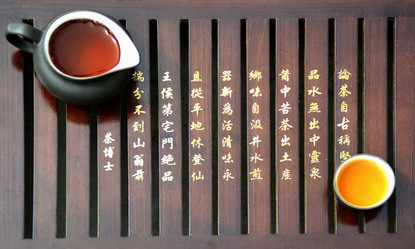 論茶自古稱壑
品水無出中霝泉
莆中苦茶出土產
鄉味自汲井水煎
器新為活清味永
且從平地休登仙
王侯第宅鬥絕品
揣分不到山翁前
茶博士